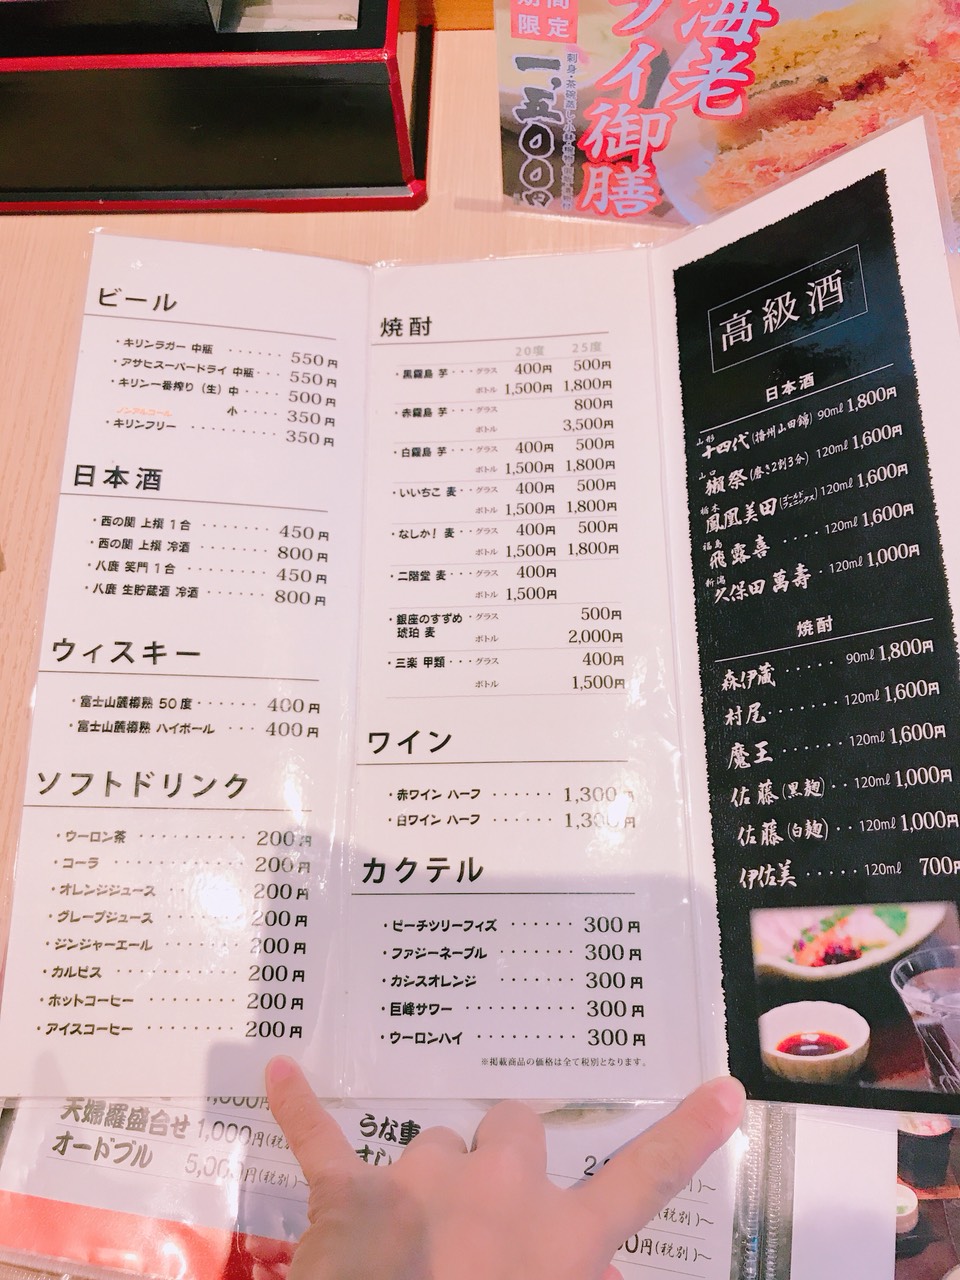 期間
限定
海老
フライ御膳
一、五〇〇円
ビール
・キリンラガー 中瓶 ・・・・・・ 550円
・アサヒスーパードライ 中瓶・・・ 550円
・キリン一番搾り（生）中・・・・ 500円
小・・・・ 350円
ノンアルコール
・キリンフリー ・・・・・・・ 350円
日本酒
・西の関 上撰 1合 ・・・・・・・ 450円
・西の関 上撰 冷酒 ・・・・・・ 800円
・八鹿 笑門 1合 ・・・・・・・ 450円
・八鹿 生貯蔵酒 冷酒 ・・・・・ 800円
ウィスキー
・富士山麓樽熟 50度・・・・・・ 400円
・富士山麓樽熟 ハイボール ・・・ 400円
ソフトドリンク
・ウーロン茶 ・・・・・・・・・・ 200円
・コーラ ・・・・・・・・・・・ 200円
・オレンジジュース ・・・・・・・ 200円
・グレープジュース ・・・・・・・ 200円
・ジンジャーエール ・・・・・・・ 200円
・カルピス ・・・・・・・・・・ 200円
・ホットコーヒー ・・・・・・・・ 200円
・アイスコーヒー ・・・・・・・・ 200円
焼酎
20度 25度
・黒霧島 芋・・・グラス 400円 500円
ボトル 1,500円 1,800円
・赤霧島 芋・・・グラス 800円
ボトル 3,500円
・白霧島 芋・・・グラス 400円 500円
ボトル 1,500円 1,800円
・いいちこ 麦・・グラス 400円 500円
ボトル 1,500円 1,800円
・なしか！ 麦・・グラス 400円 500円
ボトル 1,500円 1,800円
・二階堂 麦・・・グラス 400円
ボトル 1,500円
・銀座のすずめ ・グラス 500円
琥珀 麦 ボトル 2,000円
・三楽 甲類・・・グラス 400円
ボトル 1,500円
ワイン
・赤ワイン ハーフ ・・・・・・ 1,300円
・白ワイン ハーフ ・・・・・・ 1,300円
カクテル
・ピーチツリーフィズ ・・・・・・ 300円
・ファジーネーブル ・・・・・・・ 300円
・カシスオレンジ ・・・・・・・ 300円
・巨峰サワー ・・・・・・・・・ 300円
・ウーロンハイ ・・・・・・・・・ 300円
※掲載商品の価格は全て税別となります。
高級酒
日本酒
山形
十四代(播州山田錦) 90mℓ 1,800円
山口
獺祭(磨き2割3分) 120mℓ 1,600円
栃木
鳳凰美田(ゴールドフェニックス) 120mℓ 1,600円
福島
飛露喜 ・・・・ 120mℓ 1,600円
新潟
久保田 萬寿 ・ 120mℓ 1,000円
焼酎
森伊蔵 ・・・・・ 90mℓ 1,800円
村尾 ・・・・・・ 120mℓ 1,600円
魔王 ・・・・・・ 120mℓ 1,600円
佐藤(黒麹) ・・ 120mℓ 1,000円
佐藤(白麹) ・・ 120mℓ 1,000円
伊佐美 ・・・・・ 120mℓ 700円
天婦羅盛合せ 1,000円(税別)
オードブル 5,000円(税別)～
うな重
(税別)～
(税別)～
円(税別)～